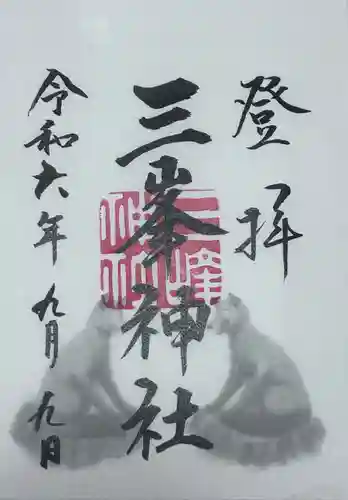 登拝
三峯神社
令和六年九月九日